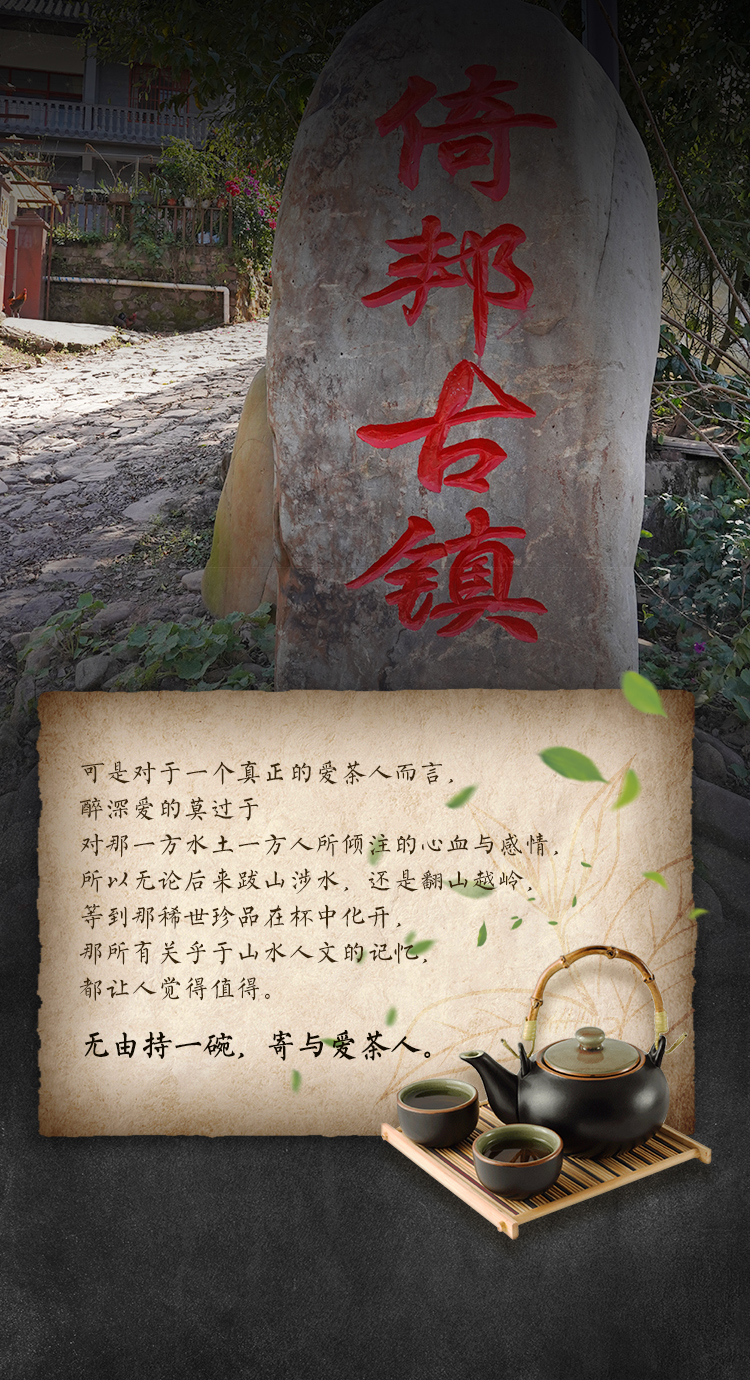 倚邦古镇
可是对于一个真正的爱茶人而言,
醉深爱的莫过于
对那一方水土一方人所倾注的心血与感情,
所以无论后来跋山涉水, 还是翻山越岭,
等到那稀世珍品在杯中化开,
那所有关乎于山水人文的记忆,
都让人觉得值得。
无由持一碗, 寄与爱茶人。